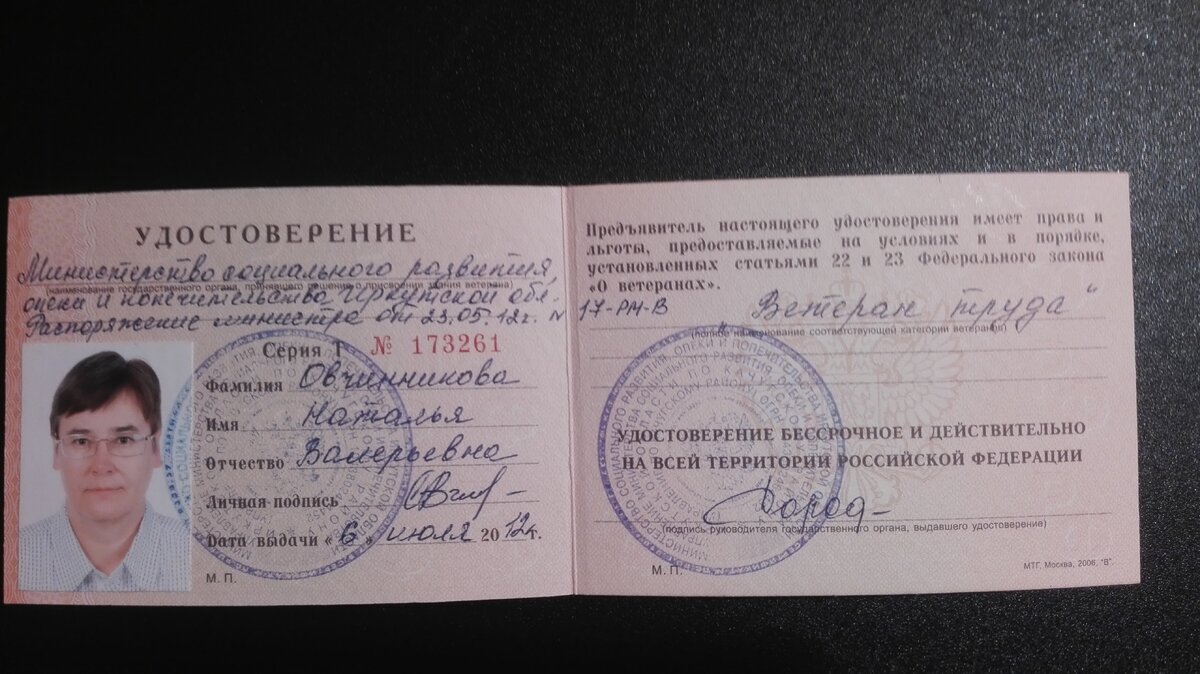 УДОСТОВЕРЕНИЕ
Министерство социального развития,
(наименование государственного органа, принявшего решение о присвоении звания ветерана)
опеки и попечительства Иркутской обл.
Распоряжение министра от 23.05.12г. N
Серия Т № 173261
Фамилия Овчинникова
Имя Наталья
Отчество Валерьевна
Личная подпись
Дата выдачи «6» июля 2012г.
М. П.
Предъявитель настоящего удостоверения имеет права и
льготы, предоставляемые на условиях и в порядке,
установленных статьями 22 и 23 Федерального закона
«О ветеранах».
17-РМ-В Ветеран труда"
(полное наименование соответствующей категории ветерана)
УДОСТОВЕРЕНИЕ БЕССРОЧНОЕ И ДЕЙСТВИТЕЛЬНО
НА ВСЕЙ ТЕРРИТОРИИ РОССИЙСКОЙ ФЕДЕРАЦИИ
(подпись руководителя государственного органа, выдавшего удостоверение)
М. П.
МТГ, Москва, 2006, "В".